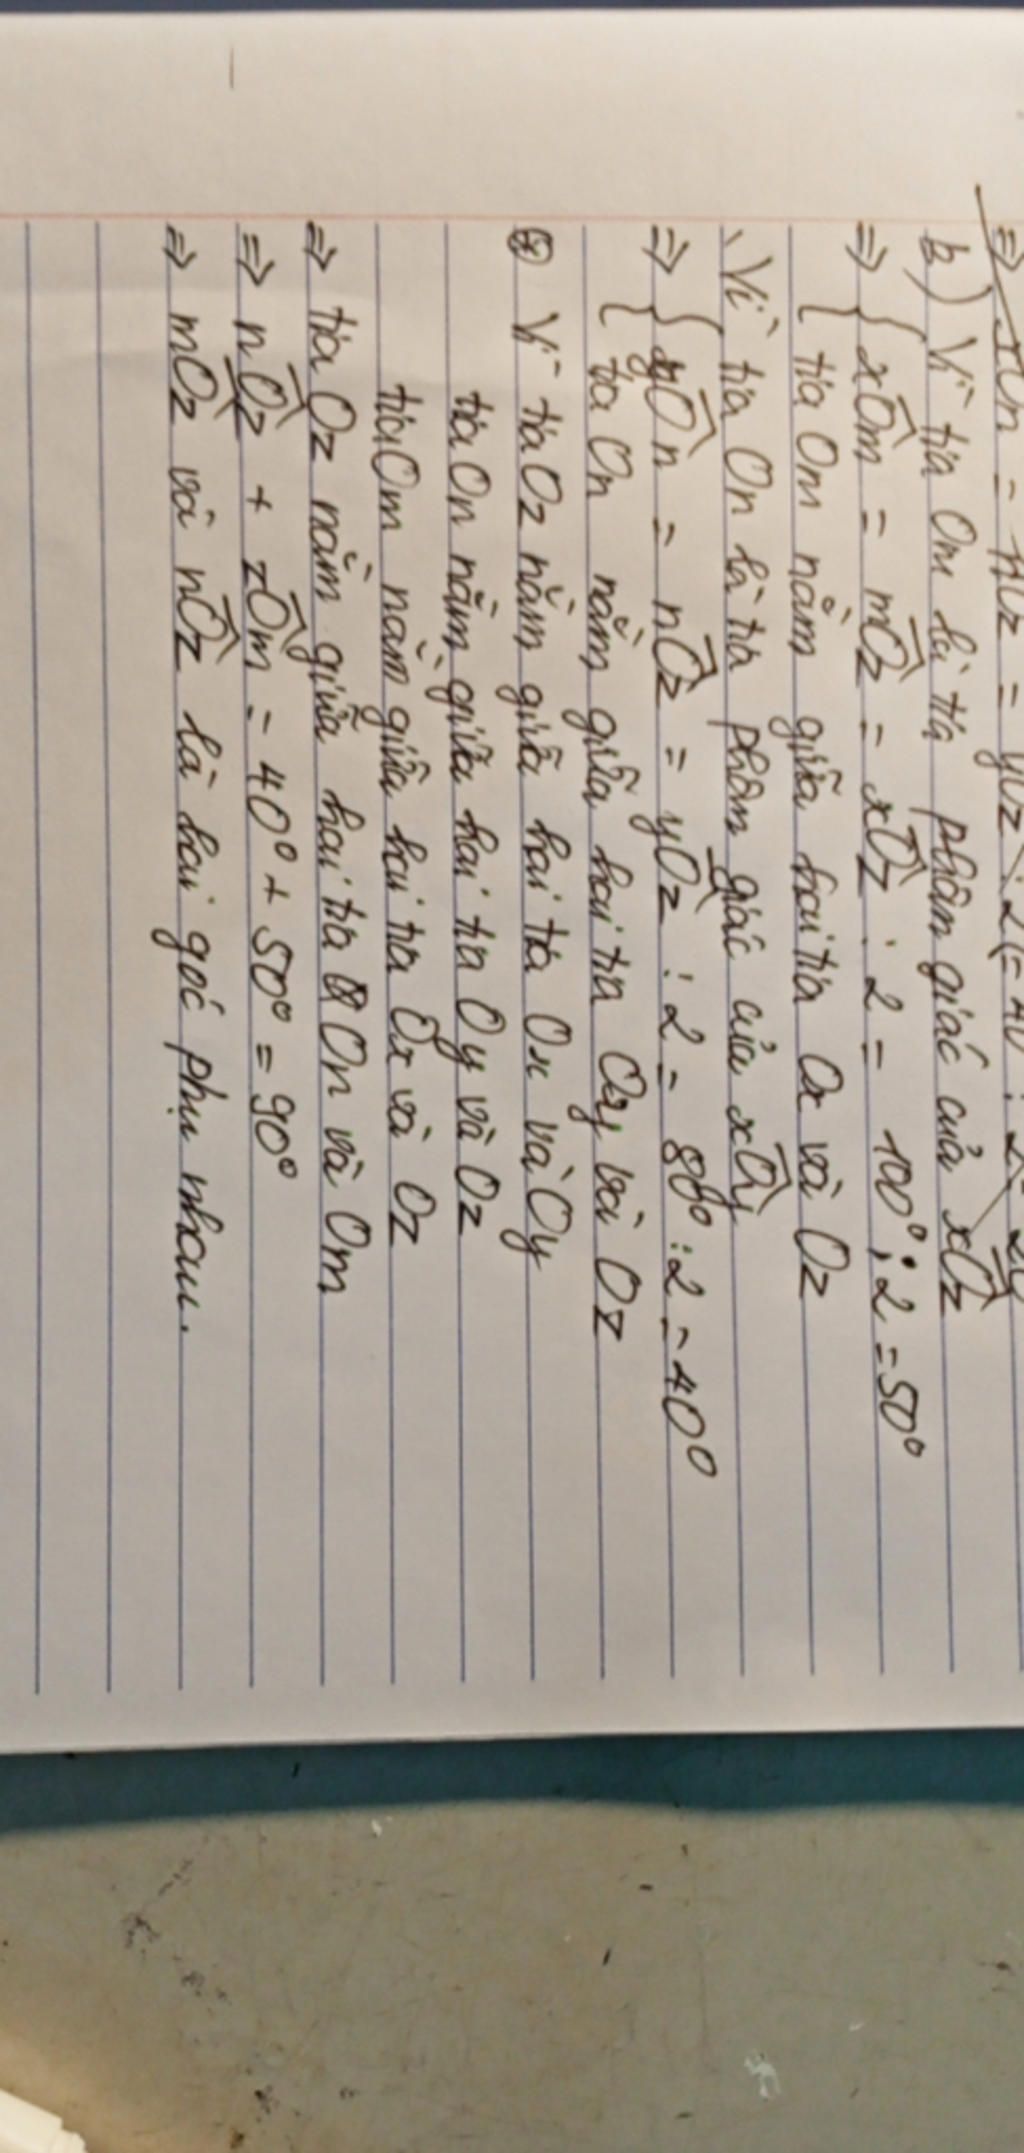 ⇒ xOn = nOz = yOz : 2 (= 40 : 2 = 20
b) Vì tia Om là tia phân giác của xOz
⇒ { xOm = mOz = xOz : 2 = 100° : 2 = 50°
{ tia Om nằm giữa hai tia Ox và Oz
Vì tia On là tia phân giác của xOy
⇒ { yOn = nOz = yOz : 2 = 80° : 2 = 40°
{ tia On nằm giữa hai tia Oy và Oz
Vì tia Oz nằm giữa hai tia Ox và Oy
tia On nằm giữa hai tia Oy và Oz
tia Om nằm giữa hai tia Ox và Oz
⇒ tia Oz nằm giữa hai tia On và Om
⇒ nOz + zOm = 40° + 50° = 90°
⇒ mOz và nOz là hai góc phụ nhau.